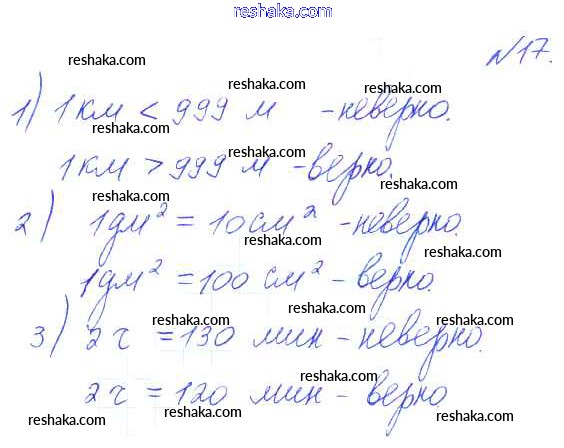 reshaka.com
№17.
reshaka.com
reshaka.com
reshaka.com
1) 1 км < 999 м - неверно.
reshaka.com
reshaka.com
1 км > 999 м - верно.
reshaka.com
reshaka.com
2) 1 дм² = 10 см² - неверно.
reshaka.com
reshaka.com
1 дм² = 100 см² - верно.
reshaka.com
reshaka.com
reshaka.com
3) 2 ч = 130 мин - неверно.
reshaka.com
reshaka.com
2 ч = 120 мин - верно
reshaka.com
reshaka.com
reshaka.com